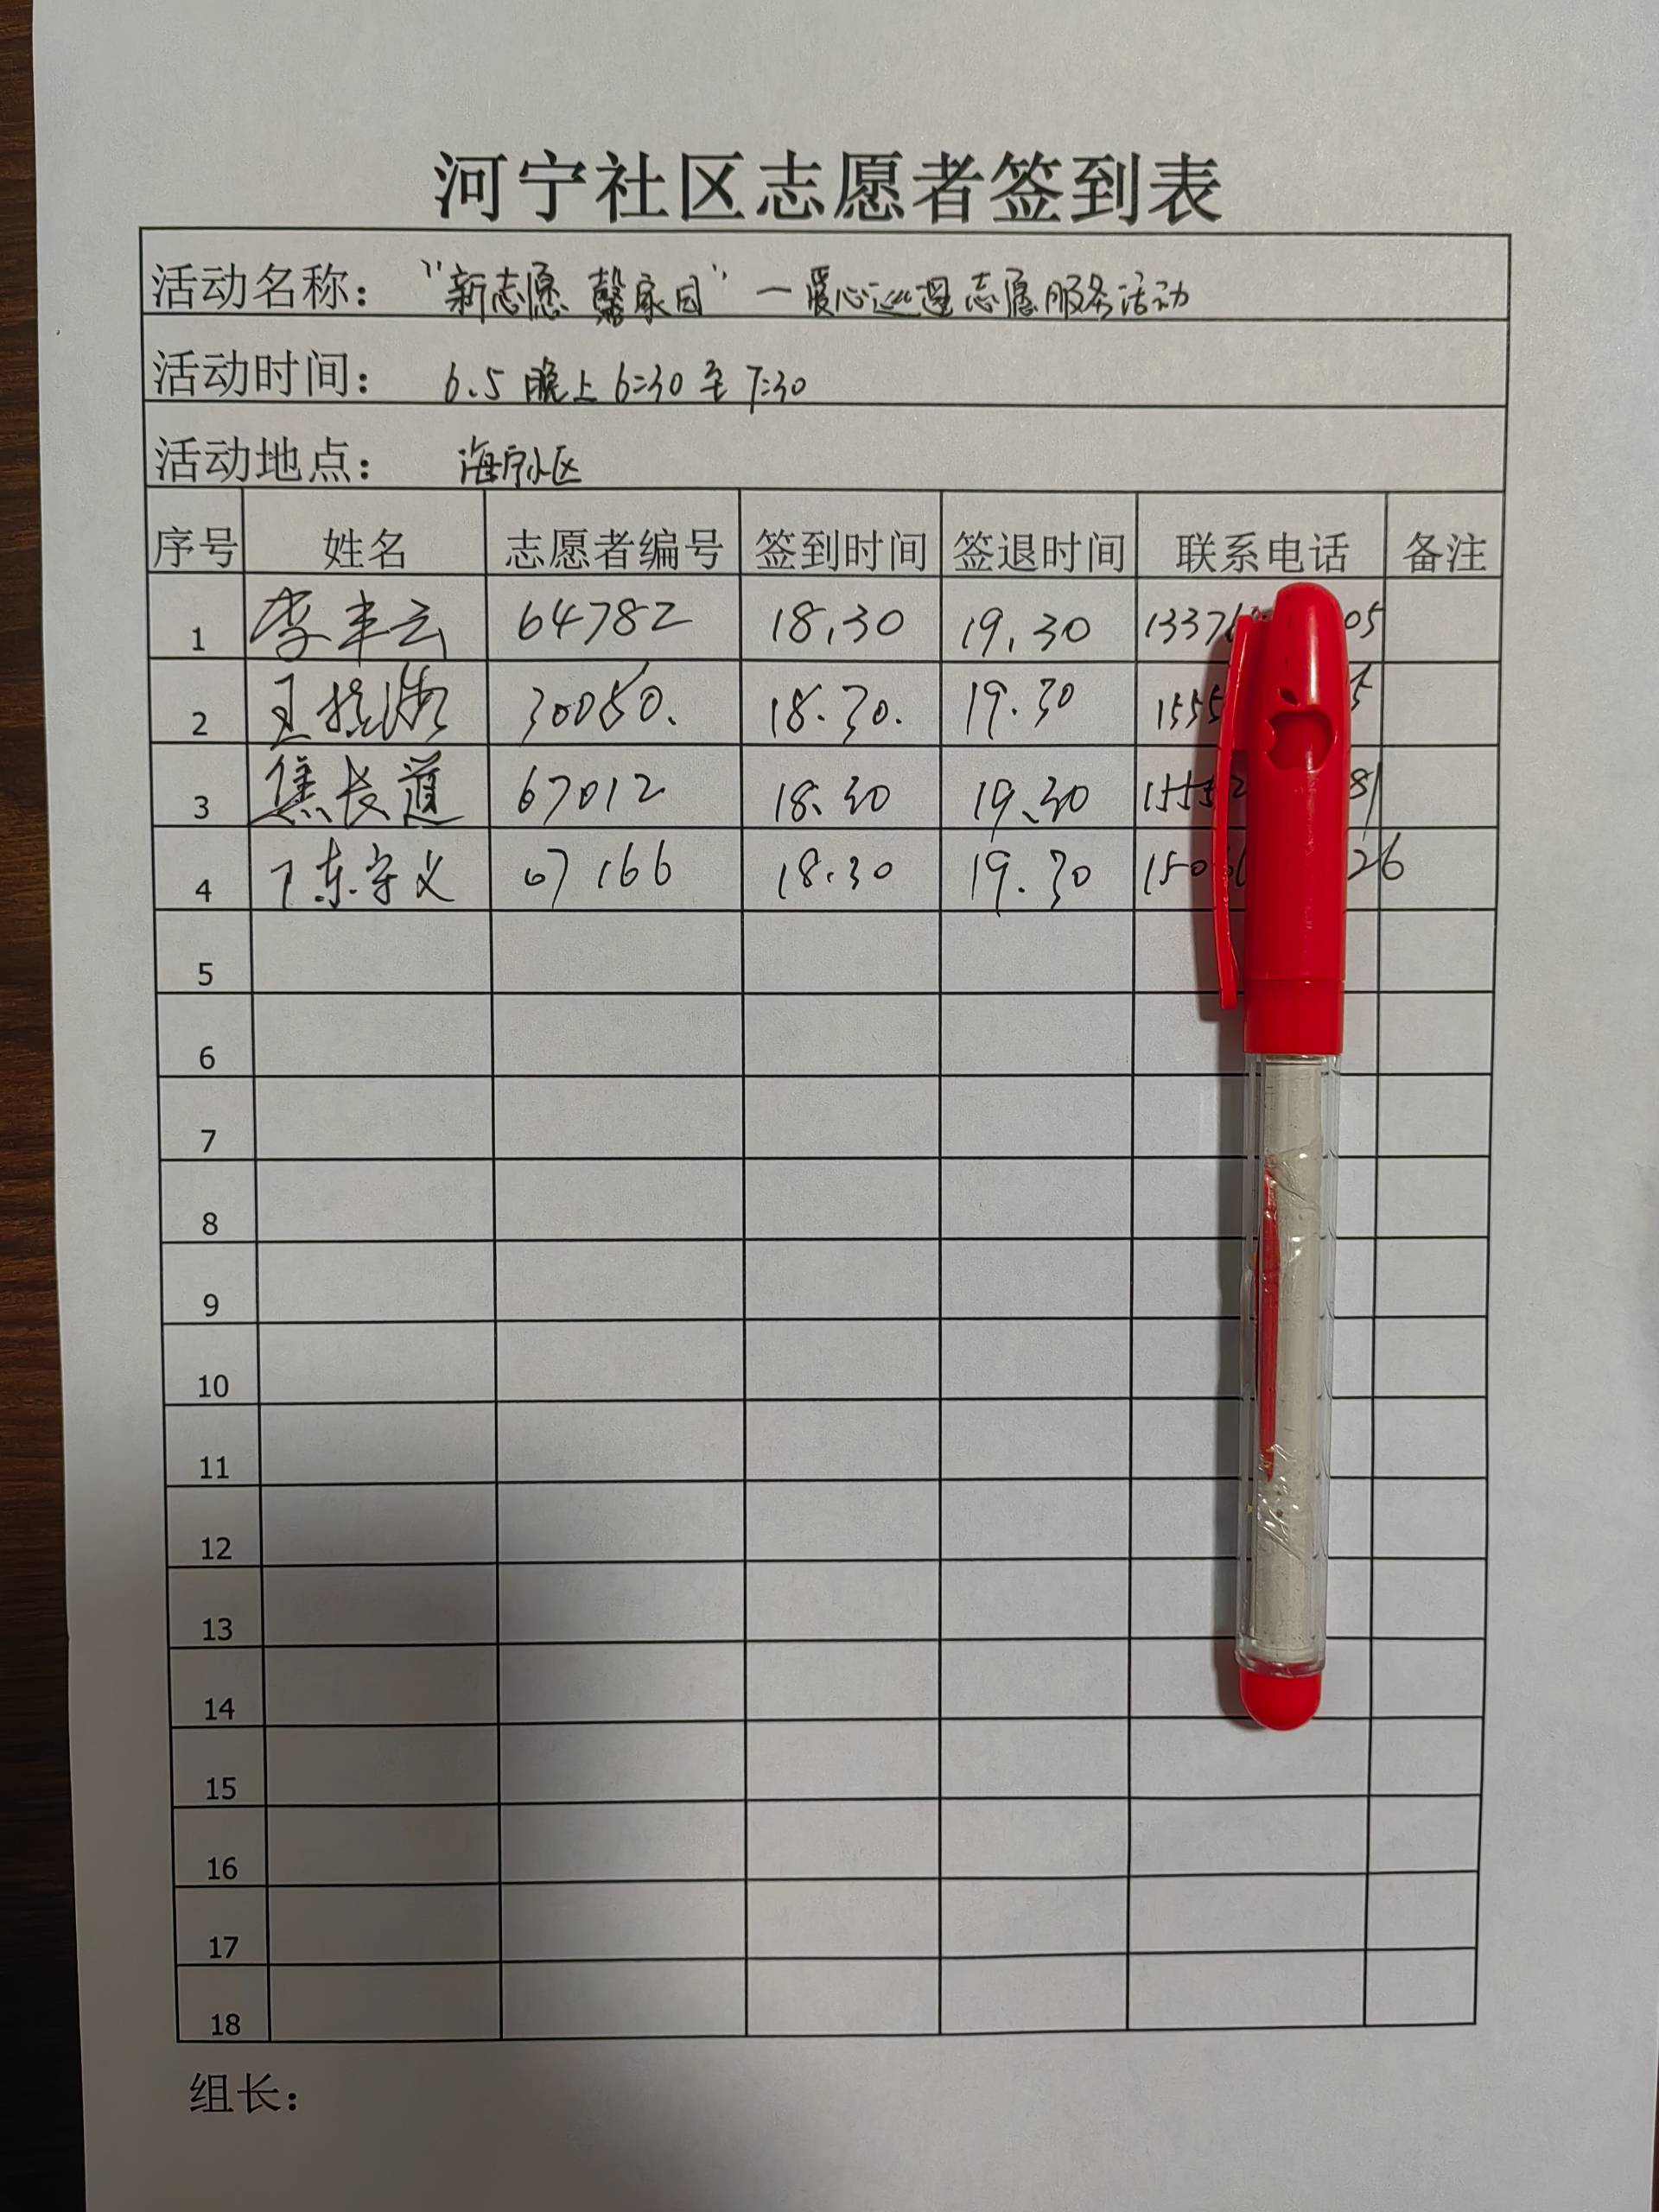 河宁社区志愿者签到表
活动名称： “新志愿 馨家园”一爱心巡逻志愿服务活动
活动时间： 6.5 晚上 6:30 至 7:30
活动地点： 海宁小区
序号 姓名 志愿者编号 签到时间 签退时间 联系电话 备注
1 李丰云 64782 18.30 19.30 1337 05
2 王 30050. 18.30. 19.30 1555 5
3 焦长道 67012 18.30 19.30 1555 81
4 陈守义 67166 18.30 19.30 150 26
5
6
7
8
9
10
11
12
13
14
15
16
17
18
组长：